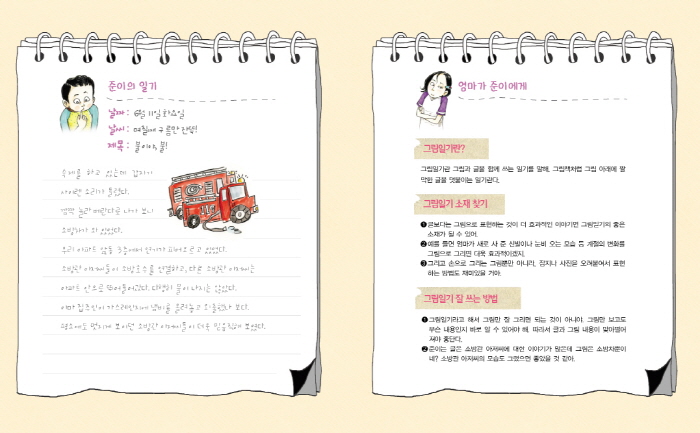 준이의 일기
날짜 : 6월 11일 화요일
날씨 : 며칠째 구름만 잔뜩
제목 : 불이야, 불
숙제를 하고 있는데 갑자기
사이렌 소리가 들렸다.
깜짝 놀라 베란다로 나가 보니
소방차가 와 있었다.
우리 아파트 앞동 3층에서 연기가 피어오르고 있었다.
소방관 아저씨들이 소방호스를 연결하고, 다른 소방관 아저씨는
아파트 안으로 뛰어들어갔다. 다행히 불이 나지는 않았다.
아마 집주인이 가스레인지에 냄비를 올려놓고 외출했나 보다.
평소에도 멋지게 보이던 소방관 아저씨들이 더욱 믿음직해 보였다.
엄마가 준이에게
그림일기란?
그림일기란 그림과 글을 함께 쓰는 일기를 말해. 그림책처럼 그림 아래에 짤
막한 글을 덧붙이는 일기란다.
그림일기 소재 찾기
❶글보다는 그림으로 표현하는 것이 더 효과적인 이야기면 그림일기의 좋은
소재가 될 수 있어.
❷예를 들면 엄마가 새로 사 준 신발이나 눈비 오는 모습 등 계절의 변화를
그림으로 그리면 더욱 효과적이겠지.
❸그리고 손으로 그리는 그림뿐만 아니라, 잡지나 사진을 오려붙여서 표현
하는 방법도 재미있을 거야.
그림일기 잘 쓰는 방법
❶그림일기라고 해서 그림만 잘 그리면 되는 것이 아니야. 그림만 보고도
무슨 내용인지 바로 알 수 있어야 해. 따라서 글과 그림 내용이 맞아떨어
져야 좋단다.
❷준이는 글은 소방관 아저씨에 대한 이야기가 많은데 그림은 소방차뿐이
네? 소방관 아저씨의 모습도 그렸으면 좋았을 것 같아.